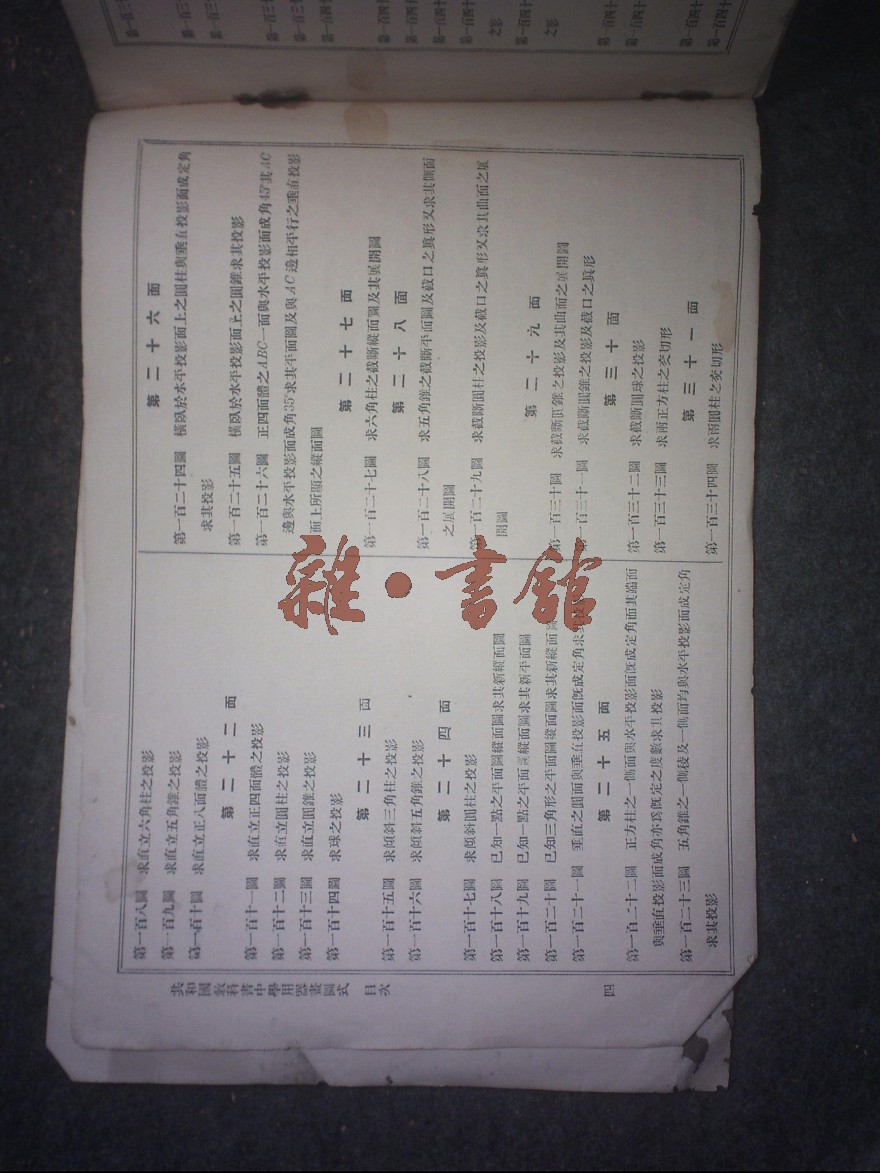 共和國教科書中學用器畫圖式 目次
四
第一百八圖 求直立六角柱之投影
第一百九圖 求直立五角錐之投影
第一百十圖 求直立正八面體之投影
第二十二面
第一百十一圖 求直立正四面體之投影
第一百十二圖 求直立圓柱之投影
第一百十三圖 求直立圓錐之投影
第一百十四圖 求球之投影
第二十三面
第一百十五圖 求傾斜三角柱之投影
第一百十六圖 求傾斜五角錐之投影
第二十四面
第一百十七圖 求傾斜圓柱之投影
第一百十八圖 已知一點之平面圖縱面圖求其新縱面圖
第一百十九圖 已知一點之平面圖縱面圖求其新平面圖
第一百二十圖 已知三角形之平面圖縱面圖求其新縱面圖
第一百二十一圖 垂直之圓面與垂直投影面旣成定角求
第二十五面
第一百二十二圖 正方柱之一側面與水平投影面旣成定角而其端面
與垂直投影面成角亦爲旣定之度數求其投影
第一百二十三圖 五角錐之一側稜及一側面均與水平投影面成定角
求其投影
第二十六面
第一百二十四圖 橫臥於水平投影面上之圓柱與垂直投影面成定角
求其投影
第一百二十五圖 橫臥於水平投影面上之圓錐求其投影
第一百二十六圖 正四面體之ABC一面與水平投影面成角45°其AC
邊與水平投影面成角35°求其平面圖及與AC邊相平行之垂直投影
面上所顯之縱面圖
第二十七面
第一百二十七圖 求六角柱之截斷縱面圖及其展開圖
第二十八面
第一百二十八圖 求五角錐之截斷平面圖及截口之眞形又求其側面
之展開圖
第一百二十九圖 求截斷圓柱之投影及截口之眞形又求其曲面之展
開圖
第二十九面
第一百三十圖 求截斷圓錐之投影及其曲面之展開圖
第一百三十一圖 求截斷圓錐之投影及截口之眞形
第三十面
第一百三十二圖 求截斷圓球之投影
第一百三十三圖 求兩正方柱之交切形
第三十一面
第一百三十四圖 求兩圓柱之交切形
雜·書館